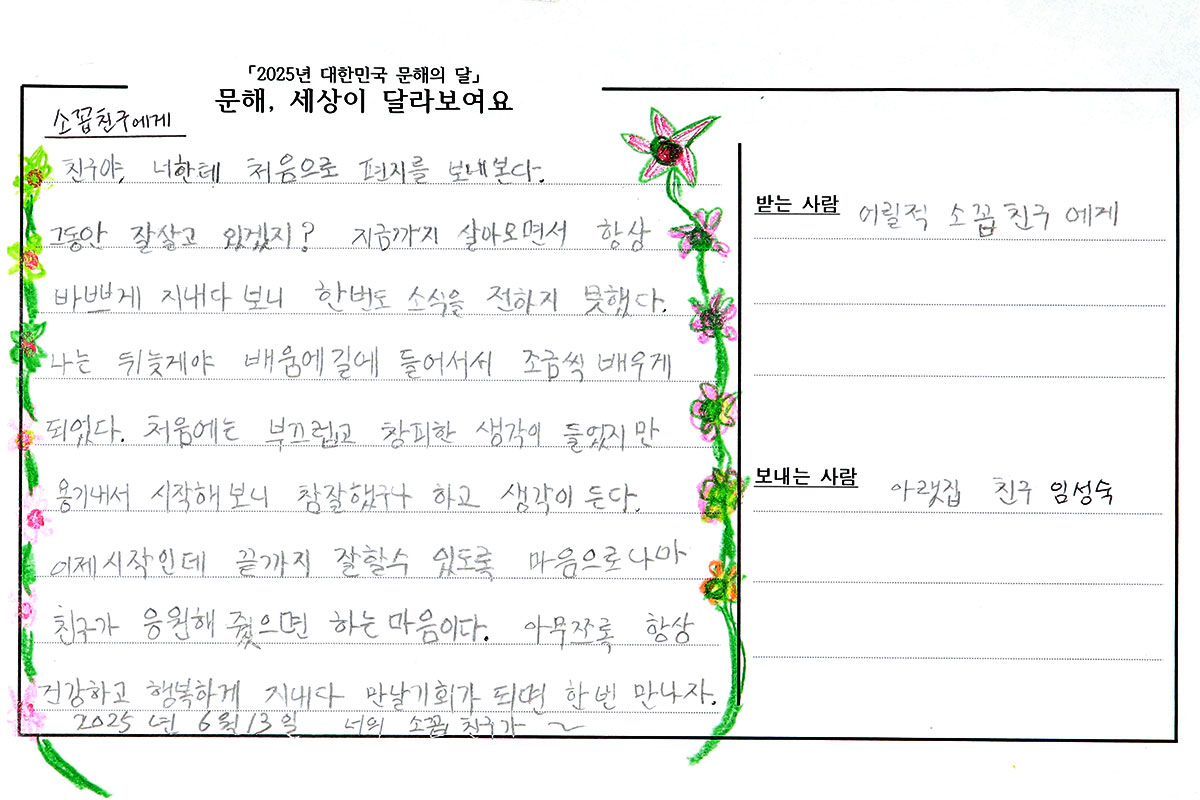 「2025년 대한민국 문해의 달」
문해, 세상이 달라보여요
소꼽친구에게
친구야, 너한테 처음으로 편지를 보내본다.
그동안 잘살고 있겠지? 지금까지 살아오면서 항상
바쁘게 지내다 보니 한번도 소식을 전하지 못했다.
나는 뒤늦게야 배움에길에 들어서서 조금씩 배우게
되었다. 처음에는 부끄럽고 창피한 생각이 들었지만
용기내서 시작해보니 참잘했구나 하고 생각이 든다.
이제시작인데 끝까지 잘할수 있도록 마음으로나마
친구가 응원해 줬으면 하는마음이다. 아무쪼록 항상
건강하고 행복하게 지내다 만날기회가 되면 한번 만나자.
2025 년 6월 13일 너의 소꼽 친구가 ~
받는 사람 어릴적 소꼽친구에게
보내는 사람 아랫집 친구 임성숙